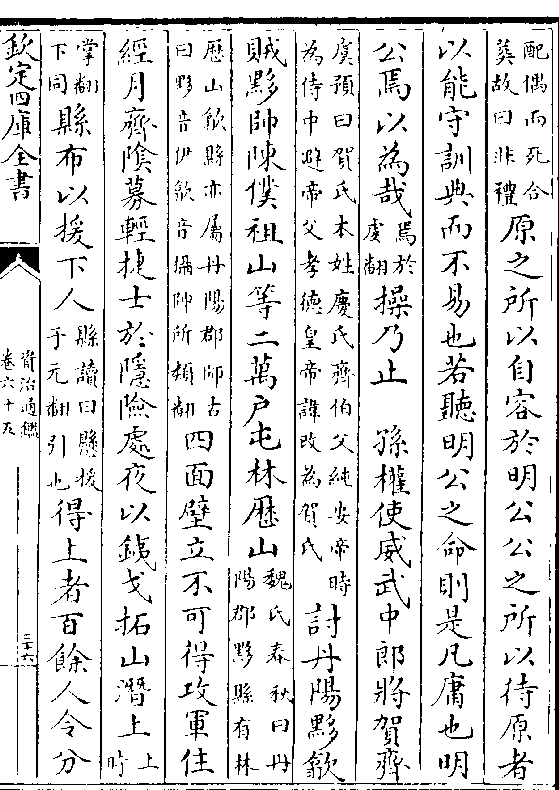 配偶而死合
葬故曰非禮
原之所以自容於明公公之所以待原者
以能守訓典而不易也若聽明公之命則是凡庸也明
公焉以為哉
焉於
䖍翻
操乃止
孫權使威武中郎將賀齊
虞預曰賀氏本姓慶氏齊伯父純安帝時
為侍中避帝父孝德皇帝諱改為賀氏
討丹陽黟歙
賊黟帥陳僕祖山等二萬户屯林歷山
魏氏春秋曰丹
陽郡黟縣有林
歷山歙縣亦屬丹陽郡師古
曰黟音伊歙音攝帥所類翻
四面壁立不可得攻軍住
經月齊陰募輕捷士於隱險處夜以鐵戈拓山潛上
上
時
掌翻
下同
縣布以援下人
縣讀曰懸援
于元翻引也
得上者百餘人令分
欽定四庫全書
資治通鑑
卷六十五
三十六